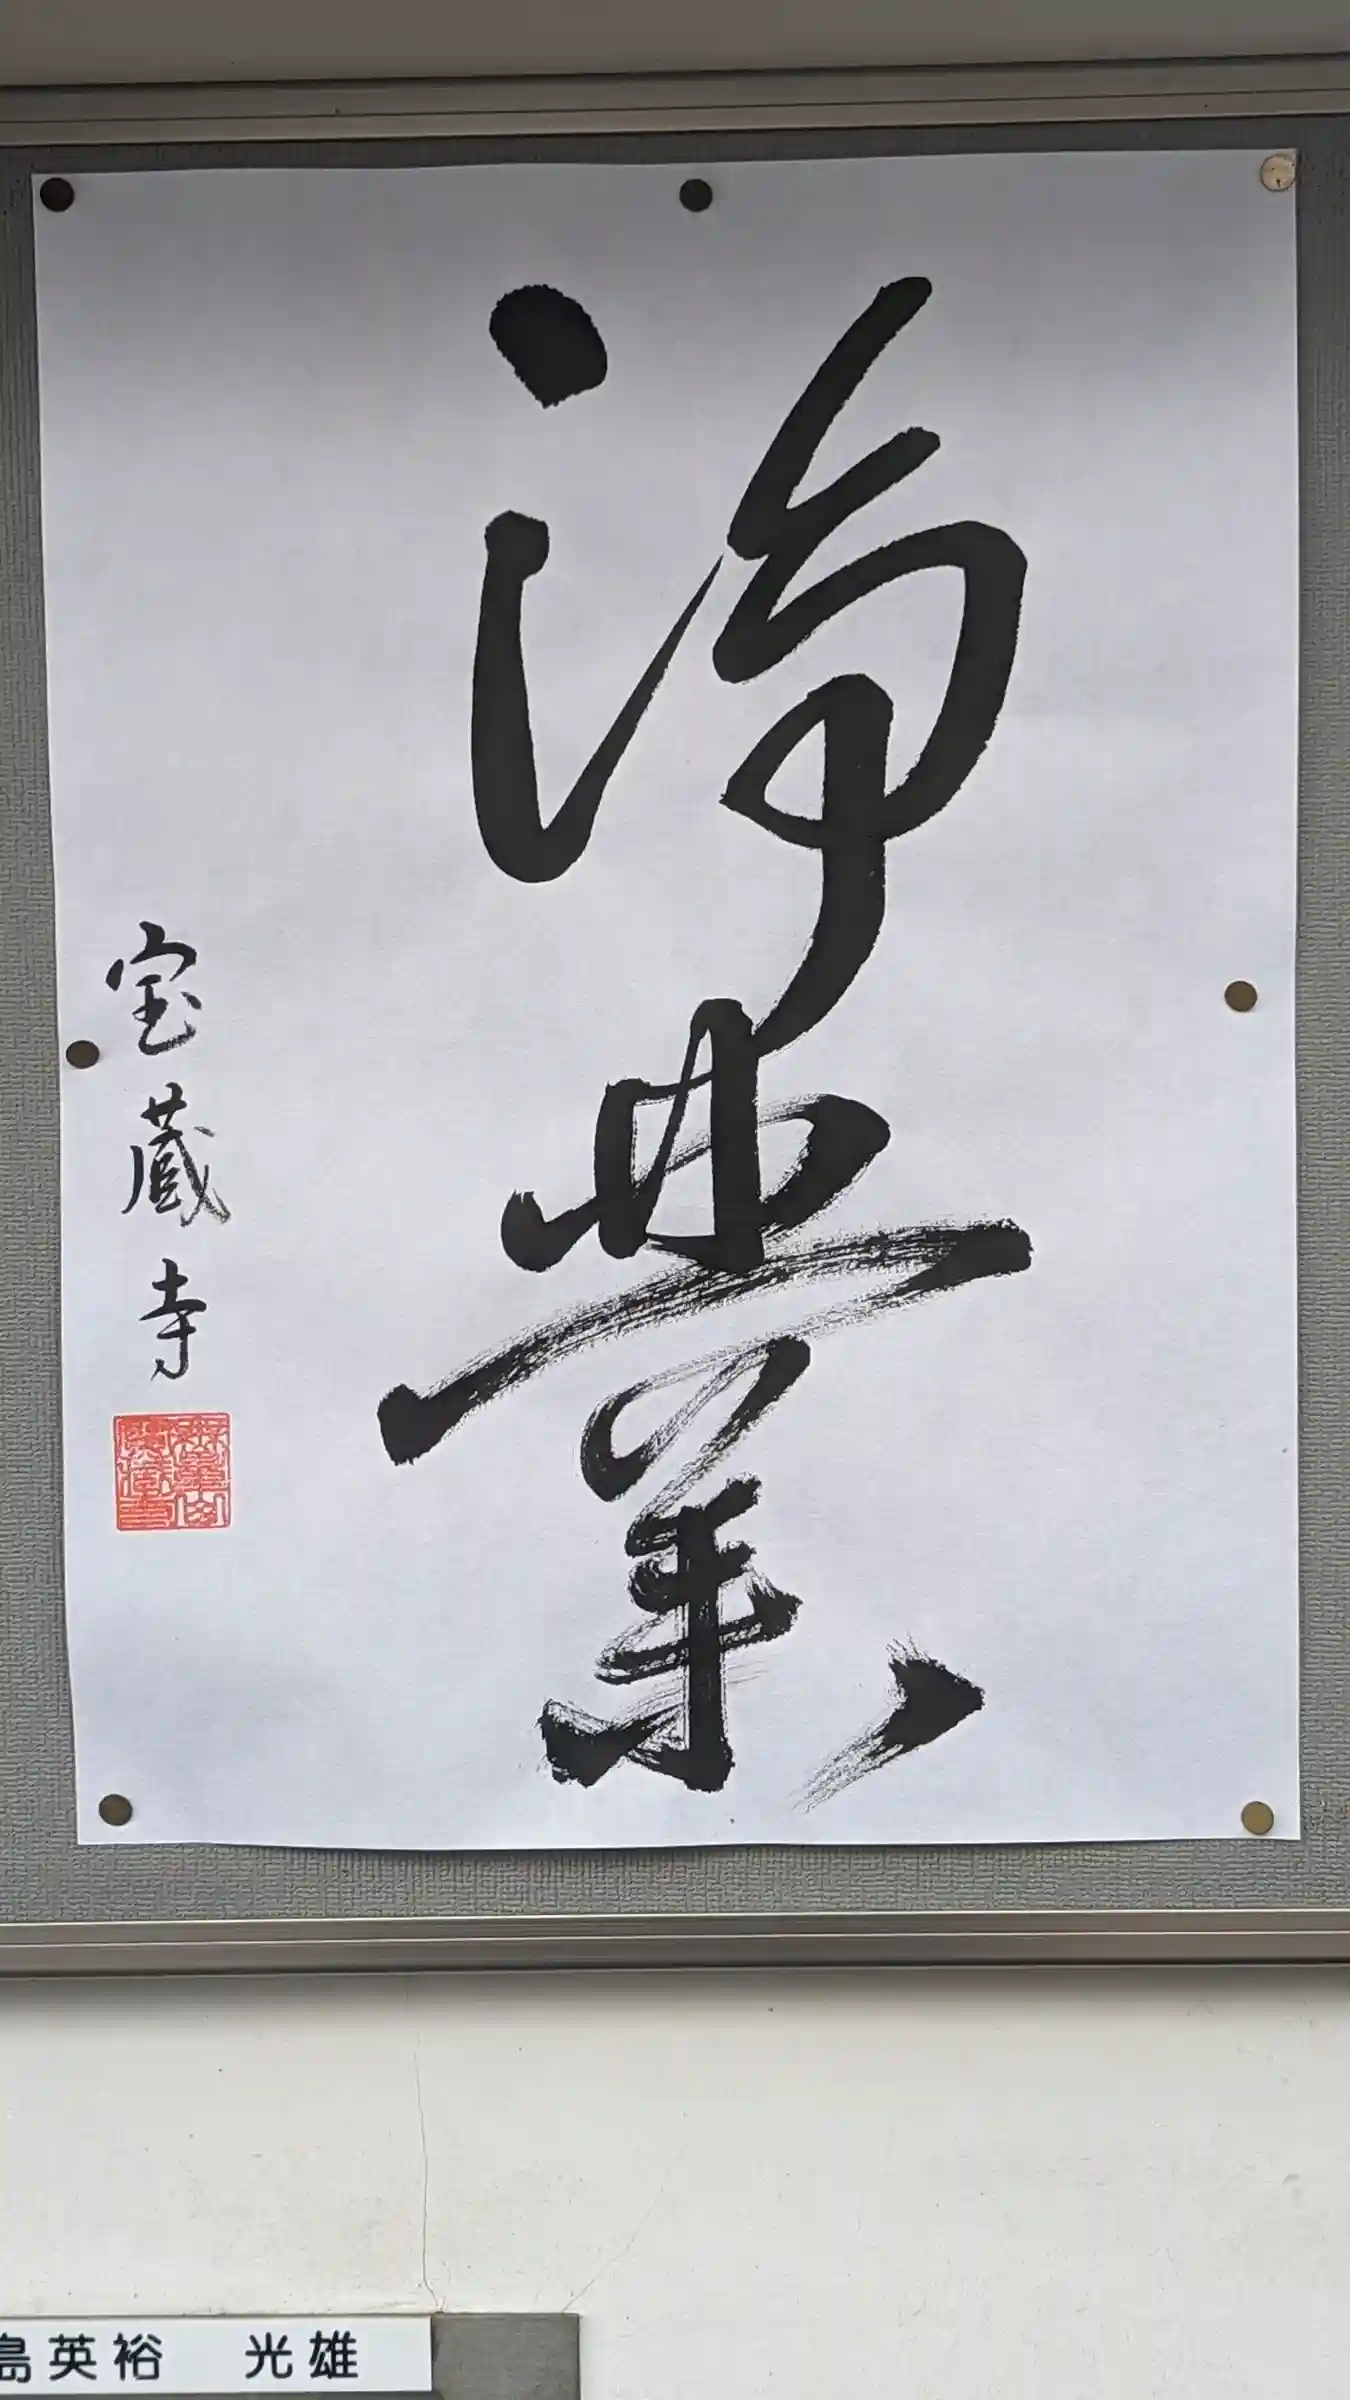 浄業
宝蔵寺
島英裕 光雄